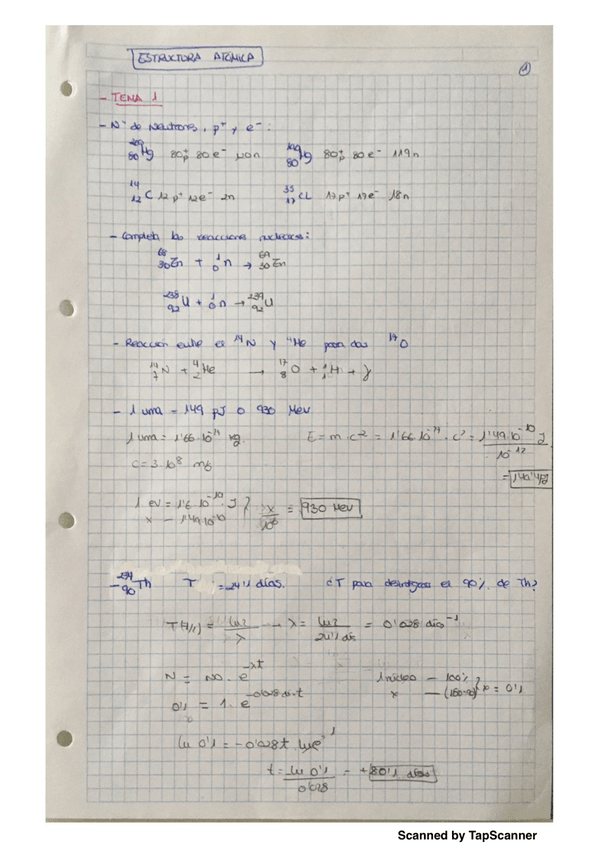 ESTRUCTURA ATÓMICA
1
- TEMA 1
- Nº de Neutrones, p⁺ y e⁻:
₈₀Hg 80p⁺ 80e⁻ 120n ₈₀Hg 80p⁺ 80e⁻ 119n
¹⁴₁₂C 12p⁺ 12e⁻ 2n ³⁵₁₇CL 17p⁺ 17e⁻ 18n
- Completa las reacciones nucleares:
⁶⁸₃₀Zn + ¹₀n → ⁶⁹₃₀Zn
²³⁸₉₂U + ¹₀n → ²³⁹₉₂U
- Reacción entre el ¹⁴N y ⁴He para dar ¹⁷O
¹⁴₇N + ⁴₂He → ¹⁷₈O + ¹₁H + γ
- 1 uma = 149 pJ o 930 MeV
1 uma = 1'66·10⁻²⁴ kg. E = m·c² = 1'66·10⁻²⁴·c² = 1'49·10⁻¹⁰ J
10⁻¹²
= 149'4pJ
c = 3·10⁸ m/s
1 eV = 1'6·10⁻¹⁹ J x = 930 MeV
x — 1'49·10⁻¹⁰ 10⁶
- ²³⁴₉₀Th T = 24'1 días. ¿T para desintegrarse el 90% de Th?
T(1/2) = ln2/λ → λ = ln2/24'1 días = 0'028 días⁻¹
N = N0 · e^-λt 1 núcleo — 100%
0'1 = 1 · e^-0'028·t x — (100-90) x = 0'1
ln 0'1 = -0'028t · lne
t = ln 0'1/0'028 = +80'1 días
Scanned by TapScanner